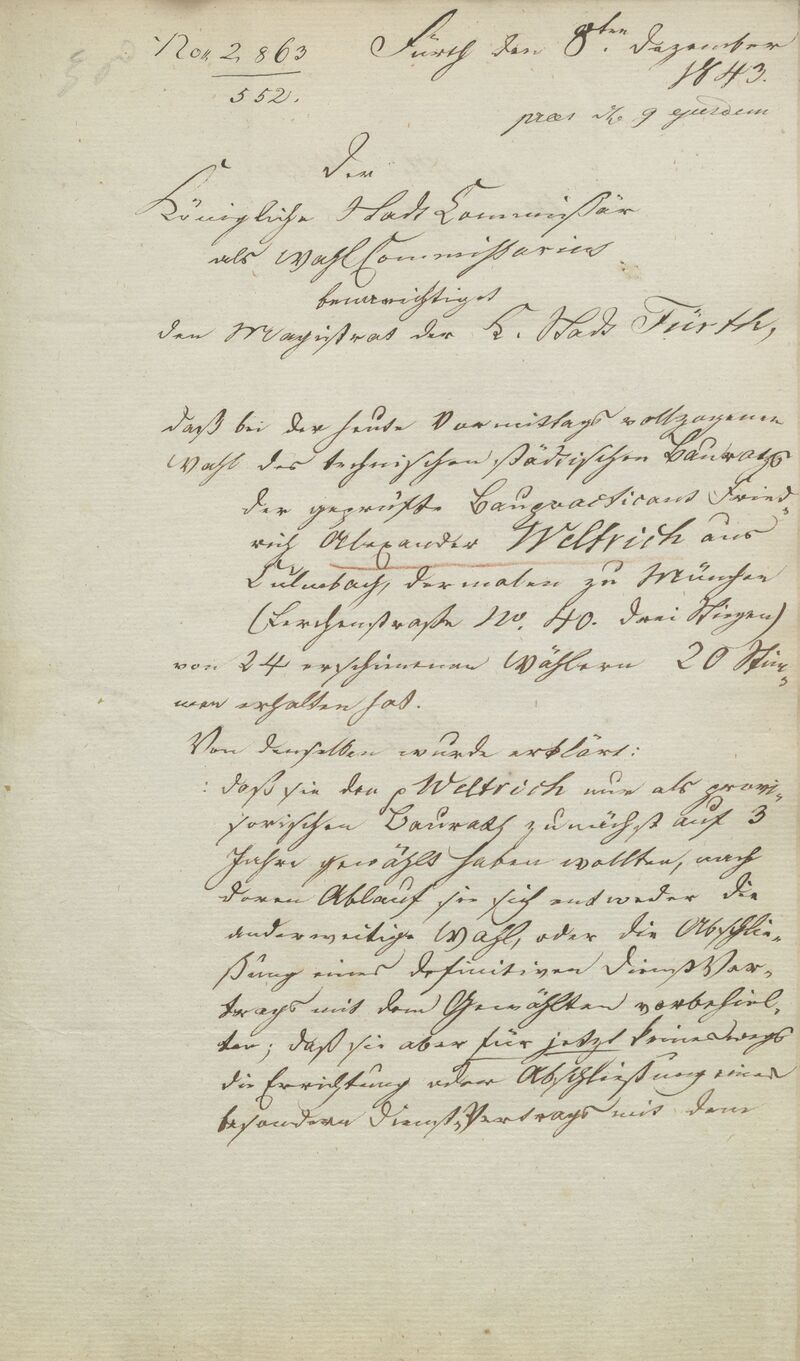 No. 2863 Fürth den 8ten Dezember
552. 1843.
praes. d. 9 ejusdem
Der
Königliche Stadt Commissär
als Wahl Commissarius
benachrichtiget
den Magistrat der K. Stadt Fürth,
daß bei der heute Vormittags vollzogenen
Wahl des technischen städtischen Bauraths
der geprüfte Baupracticant Fried-
rich Alexander Weltrich aus
Culmbach, dermalen zu München
(Lerchenstraße No. 40. drei Stiegen)
von 24 erschienenen Wählern 20 Stim-
men erhalten hat.
Von denselben wurde erklärt:
daß sie den p Weltrich nur als provi-
sorischen Baurath zunächst auf 3
Jahre gewählt haben wollten, nach
deren Ablauf sie sich entweder die
anderweitige Wahl, oder die Abschlie-
ßung eines definitiven Dienst Ver-
trags mit dem Gewählten vorbehiel-
ten; daß sie aber für jetzt keineswegs
die Errichtung oder Abschließung eines
besondern Dienst-Vertrags mit dem